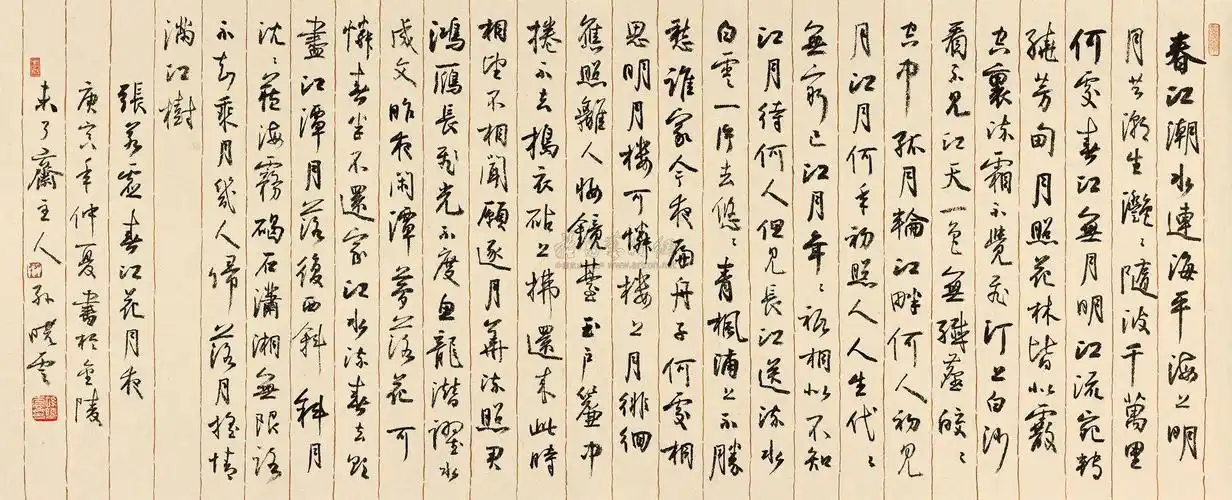 春江潮水連海平海上明
月共潮生灩〻隨波千萬里
何處春江無月明江流宛轉
繞芳甸月照花林皆似霰
空裏流霜不覺飛汀上白沙
看不見江天一色無纖塵皎〻
空中孤月輪江畔何人初見
月江月何年初照人人生代〻
無窮已江月年〻祇相似不知
江月待何人但見長江送流水
白雲一片去悠〻青楓浦上不勝
愁誰家今夜扁舟子何處相
思明月楼可憐楼上月徘徊
應照離人妝鏡臺玉戶簾中
捲不去搗衣砧上拂還來此時
相望不相聞願逐月華流照君
鴻鴈長飛光不度魚龍潛躍水
成文昨夜閑潭夢落花可
憐春半不還家江水流春去欲
盡江潭月落復西斜斜月
沈〻藏海霧碣石瀟湘無限路
不知乘月幾人歸落月搖情
滿江樹
張若虛春江花月夜
庚寅年仲夏書於金陵
未了齋主人孫曉雲